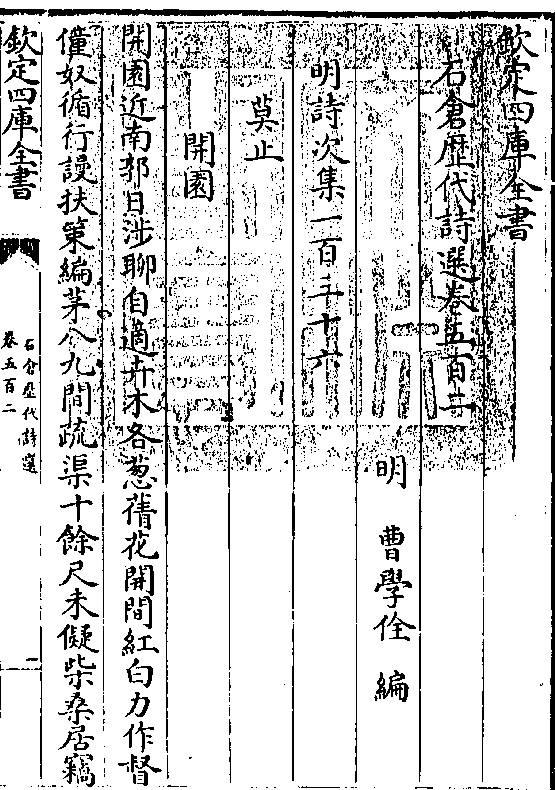 欽定四庫全書
石倉歷代詩選卷五百二
明 曹學佺 編
明詩次集一百三十六
莫止
開園
開園近南郭日涉聊自適卉木各葱蒨花開間紅白力作督
僮奴循行謾扶策編茅八九間疏渠十餘尺未儗柴桑居竊
欽定四庫全書
石倉歷代詩選
卷五百二
一